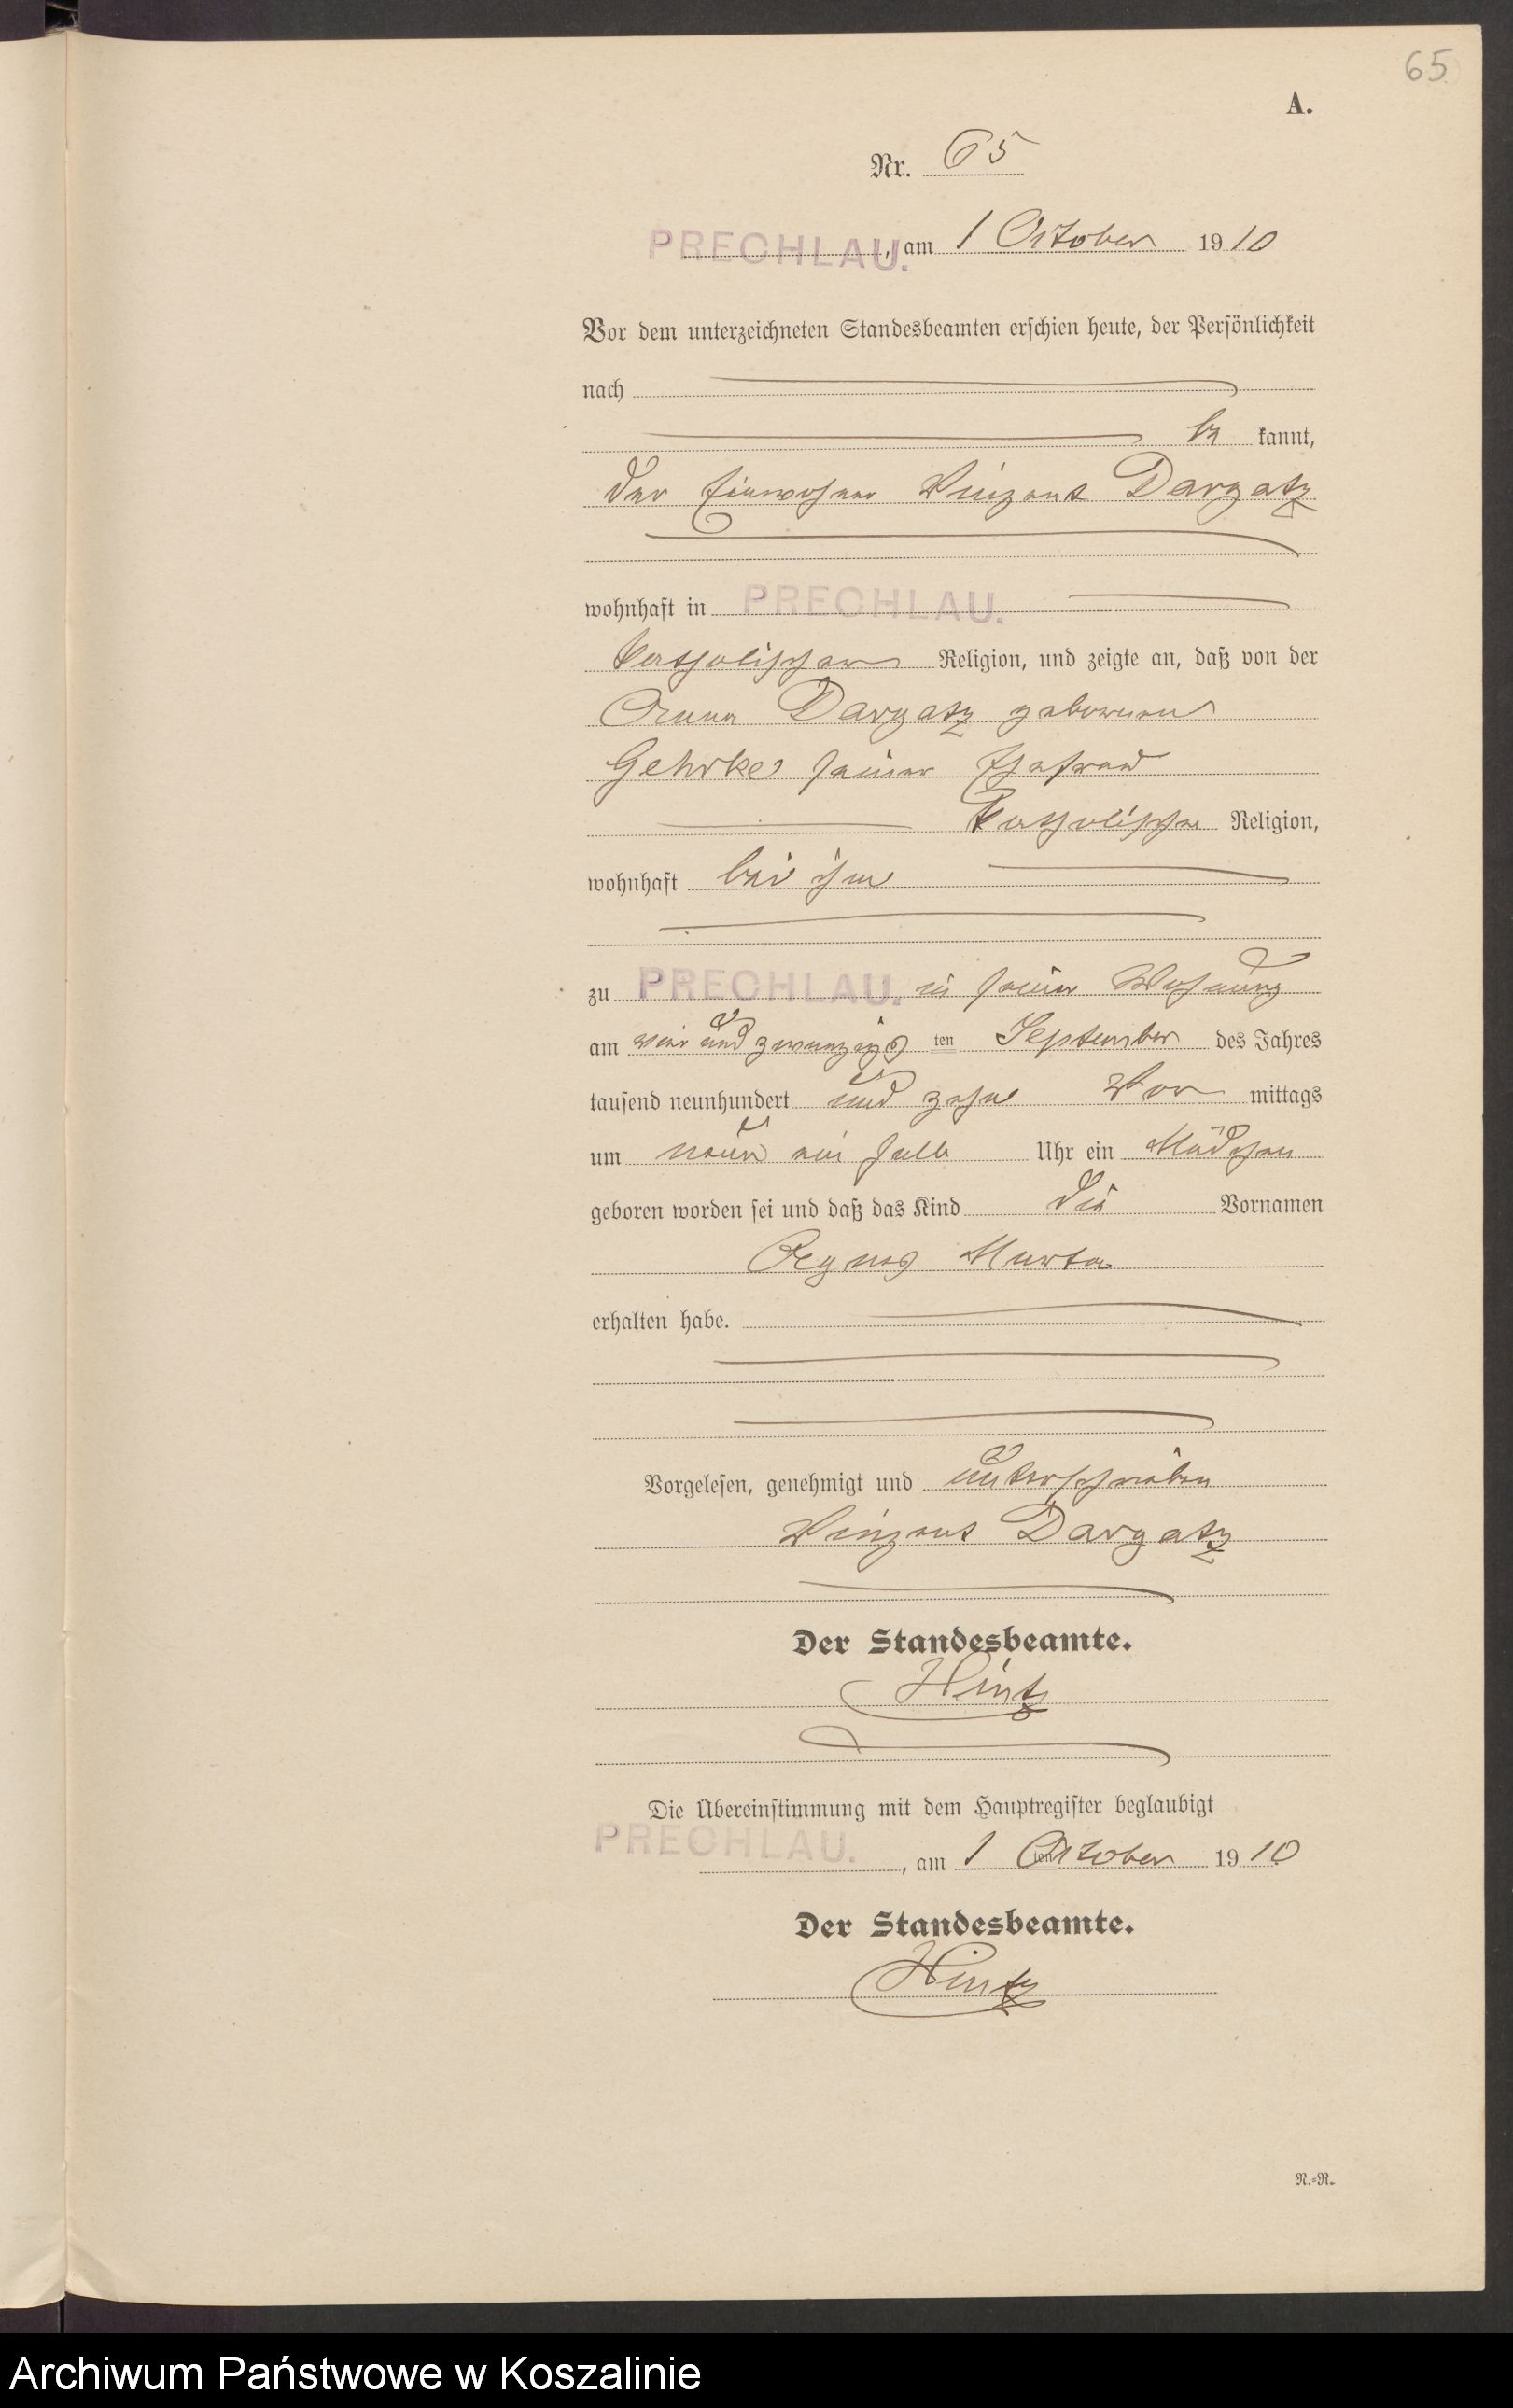 65
A.
Nr. 65
PRECHLAU., am 1 October 1910
Vor dem unterzeichneten Standesbeamten erschien heute, der Persönlichkeit
nach
be kannt,
der Einwohner Vinzent Dargatz
wohnhaft in PRECHLAU.
katholischer Religion, und zeigte an, daß von der
Anna Dargatz geborenen
Gehrke seiner Ehefrau
katholischer Religion,
wohnhaft bei ihm
zu PRECHLAU. in seiner Wohnung
am vier und zwanzigs ten September des Jahres
tausend neunhundert und zehn Vor mittags
um neun ein halb Uhr ein Mädchen
geboren worden sei und daß das Kind die Vornamen
Agnes Martha
erhalten habe.
Vorgelesen, genehmigt und unterschrieben
Vinzent Dargatz
Der Standesbeamte.
Hintz
Die Übereinstimmung mit dem Hauptregister beglaubigt
PRECHLAU., am 1 ten October 1910
Der Standesbeamte.
Hintz
N.=R.
Archiwum Państwowe w Koszalinie